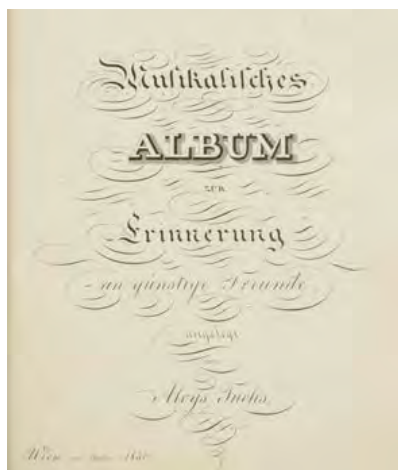 Musikalisches
ALBUM
zur
Erinnerung
an günstige Freunde
angelegt
Aloys Fuchs
Wien